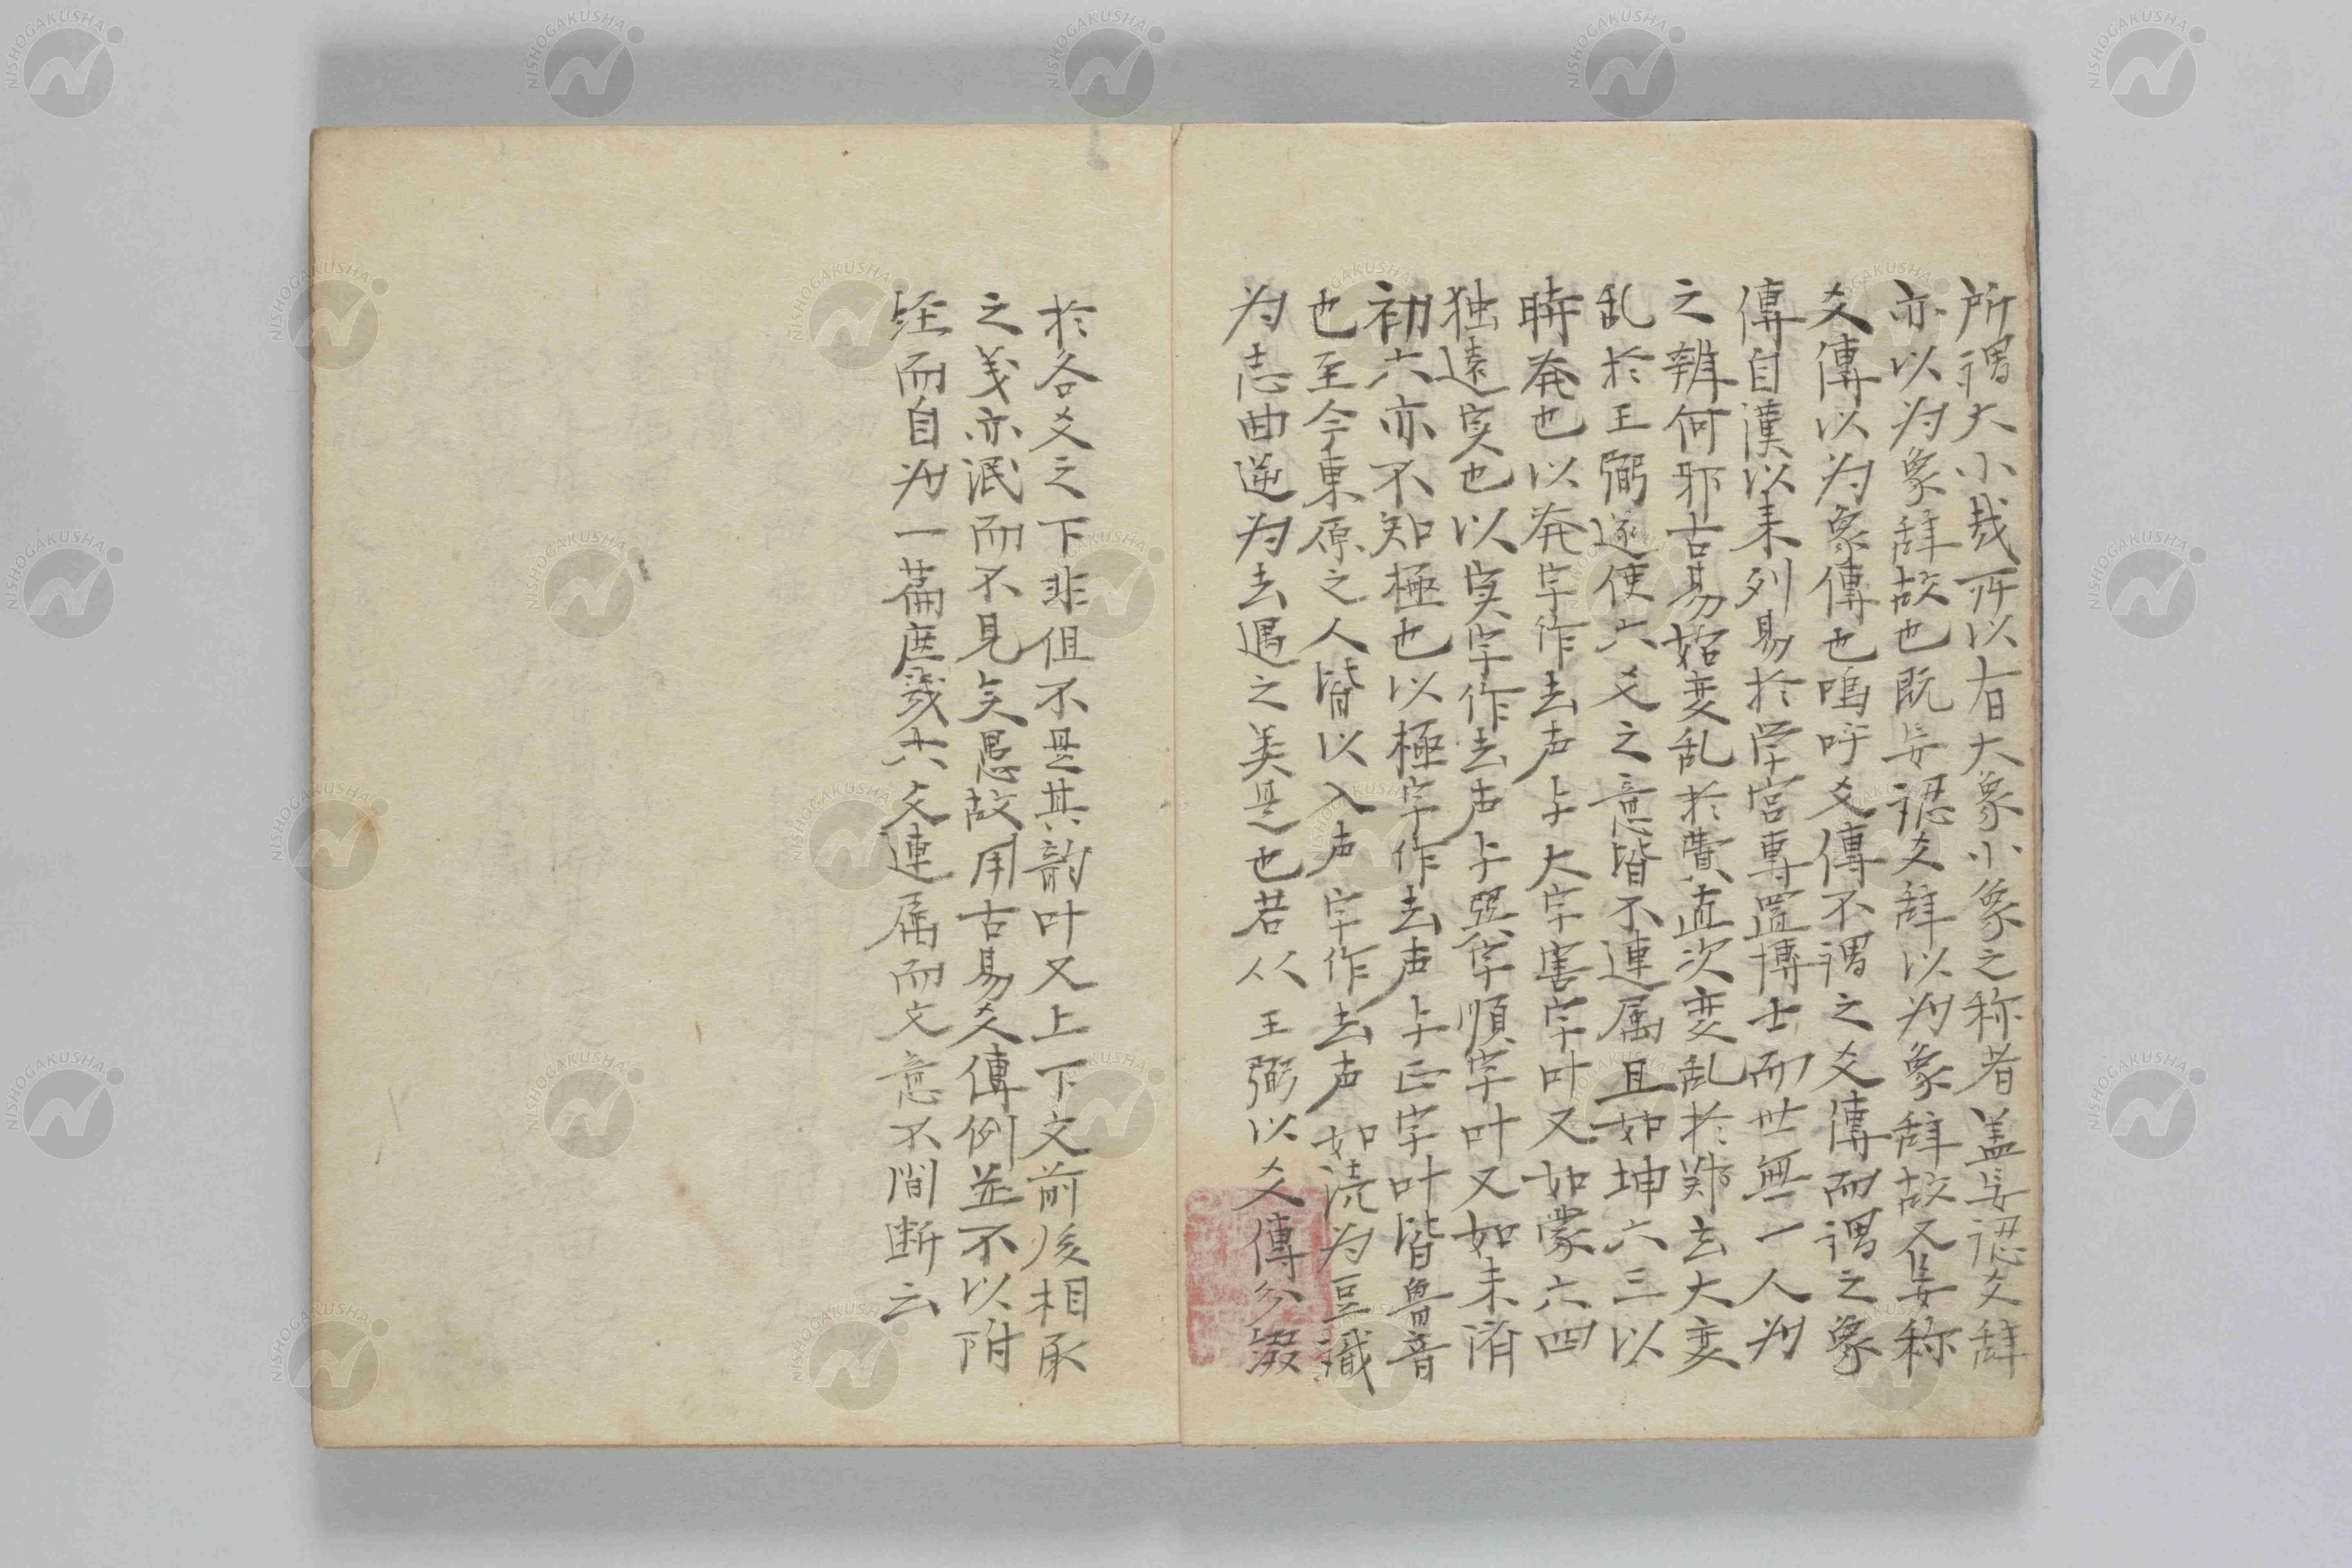 所謂大小哉所以有大象小象之称者盖妄認爻辞
亦以为象辞故也既妄認爻辞以为象辞故又妄称
爻傳以为象傳也嗚呼爻傳不謂之爻傳而謂之象
傳自漢以来列易於学宮專置博士而世無一人为
之辨何邪古易始変乱於費直次変乱於郑玄大変
乱於王弼遂使六爻之意皆不連属且如坤六三以
時発也以発字作去声与大字害字叶又如蒙六四
独遠実也以実字作去声与巽字順字叶又如未済
初六亦不知極也以極字作去声与正字叶皆魯音
也至今東原之人皆以入声字作去声如読为豆識
为志曲逆为去遇之美是也若从王弼以爻傳分綴
於各爻之下非但不見其韵叶又上下文前後相承
之義亦泯而不見矣愚故用古易爻傳例並不以附
经而自为一篇庶幾六爻連属而文意不間断云
NISHOGAKUSHA